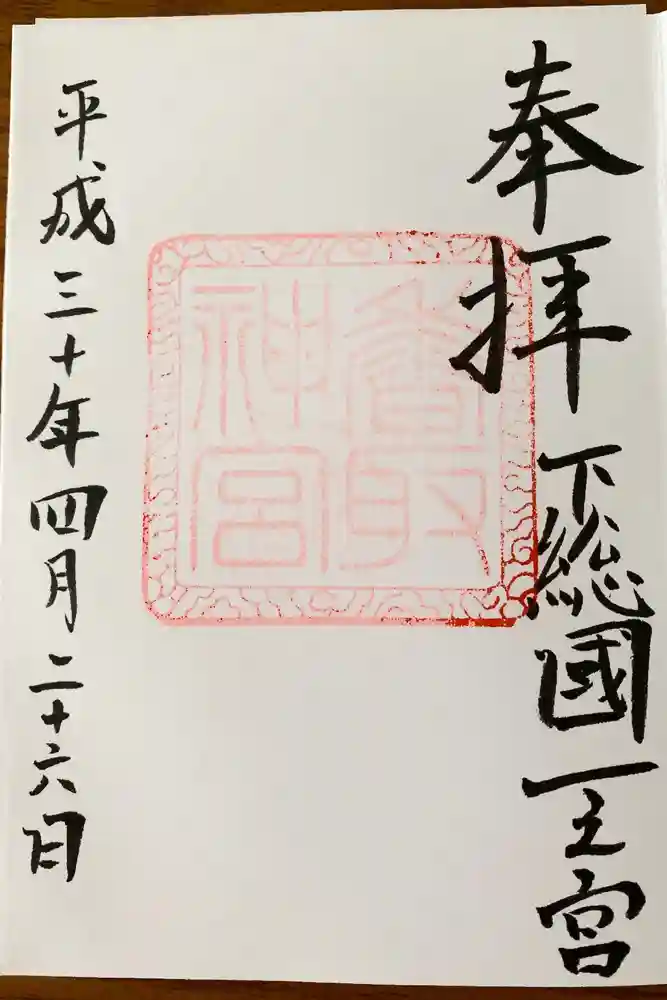 奉拝
下総國一之宮
香取
神宮
平成三十年四月二十六日